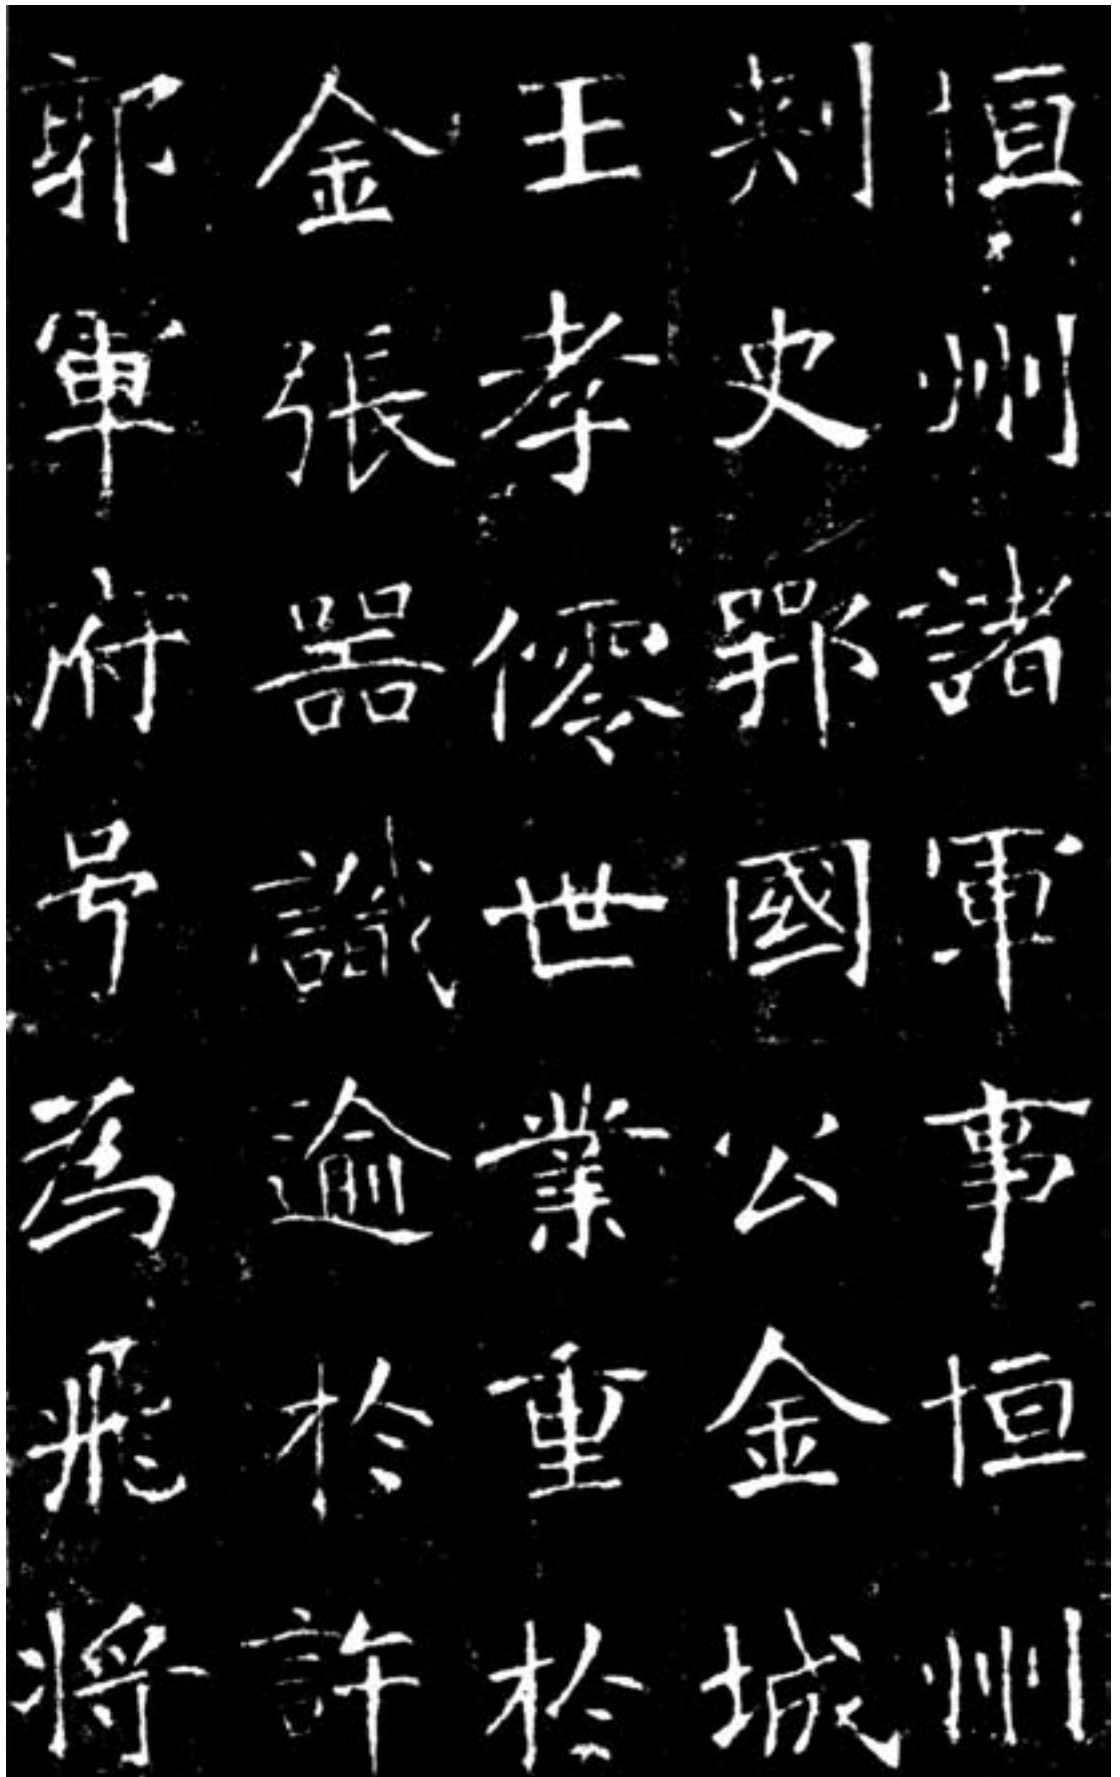 恒州諸軍事恒州
刾史鄂國公金城
王孝僊世業重於
金張噐識逾於許
郭軍府号為飛将